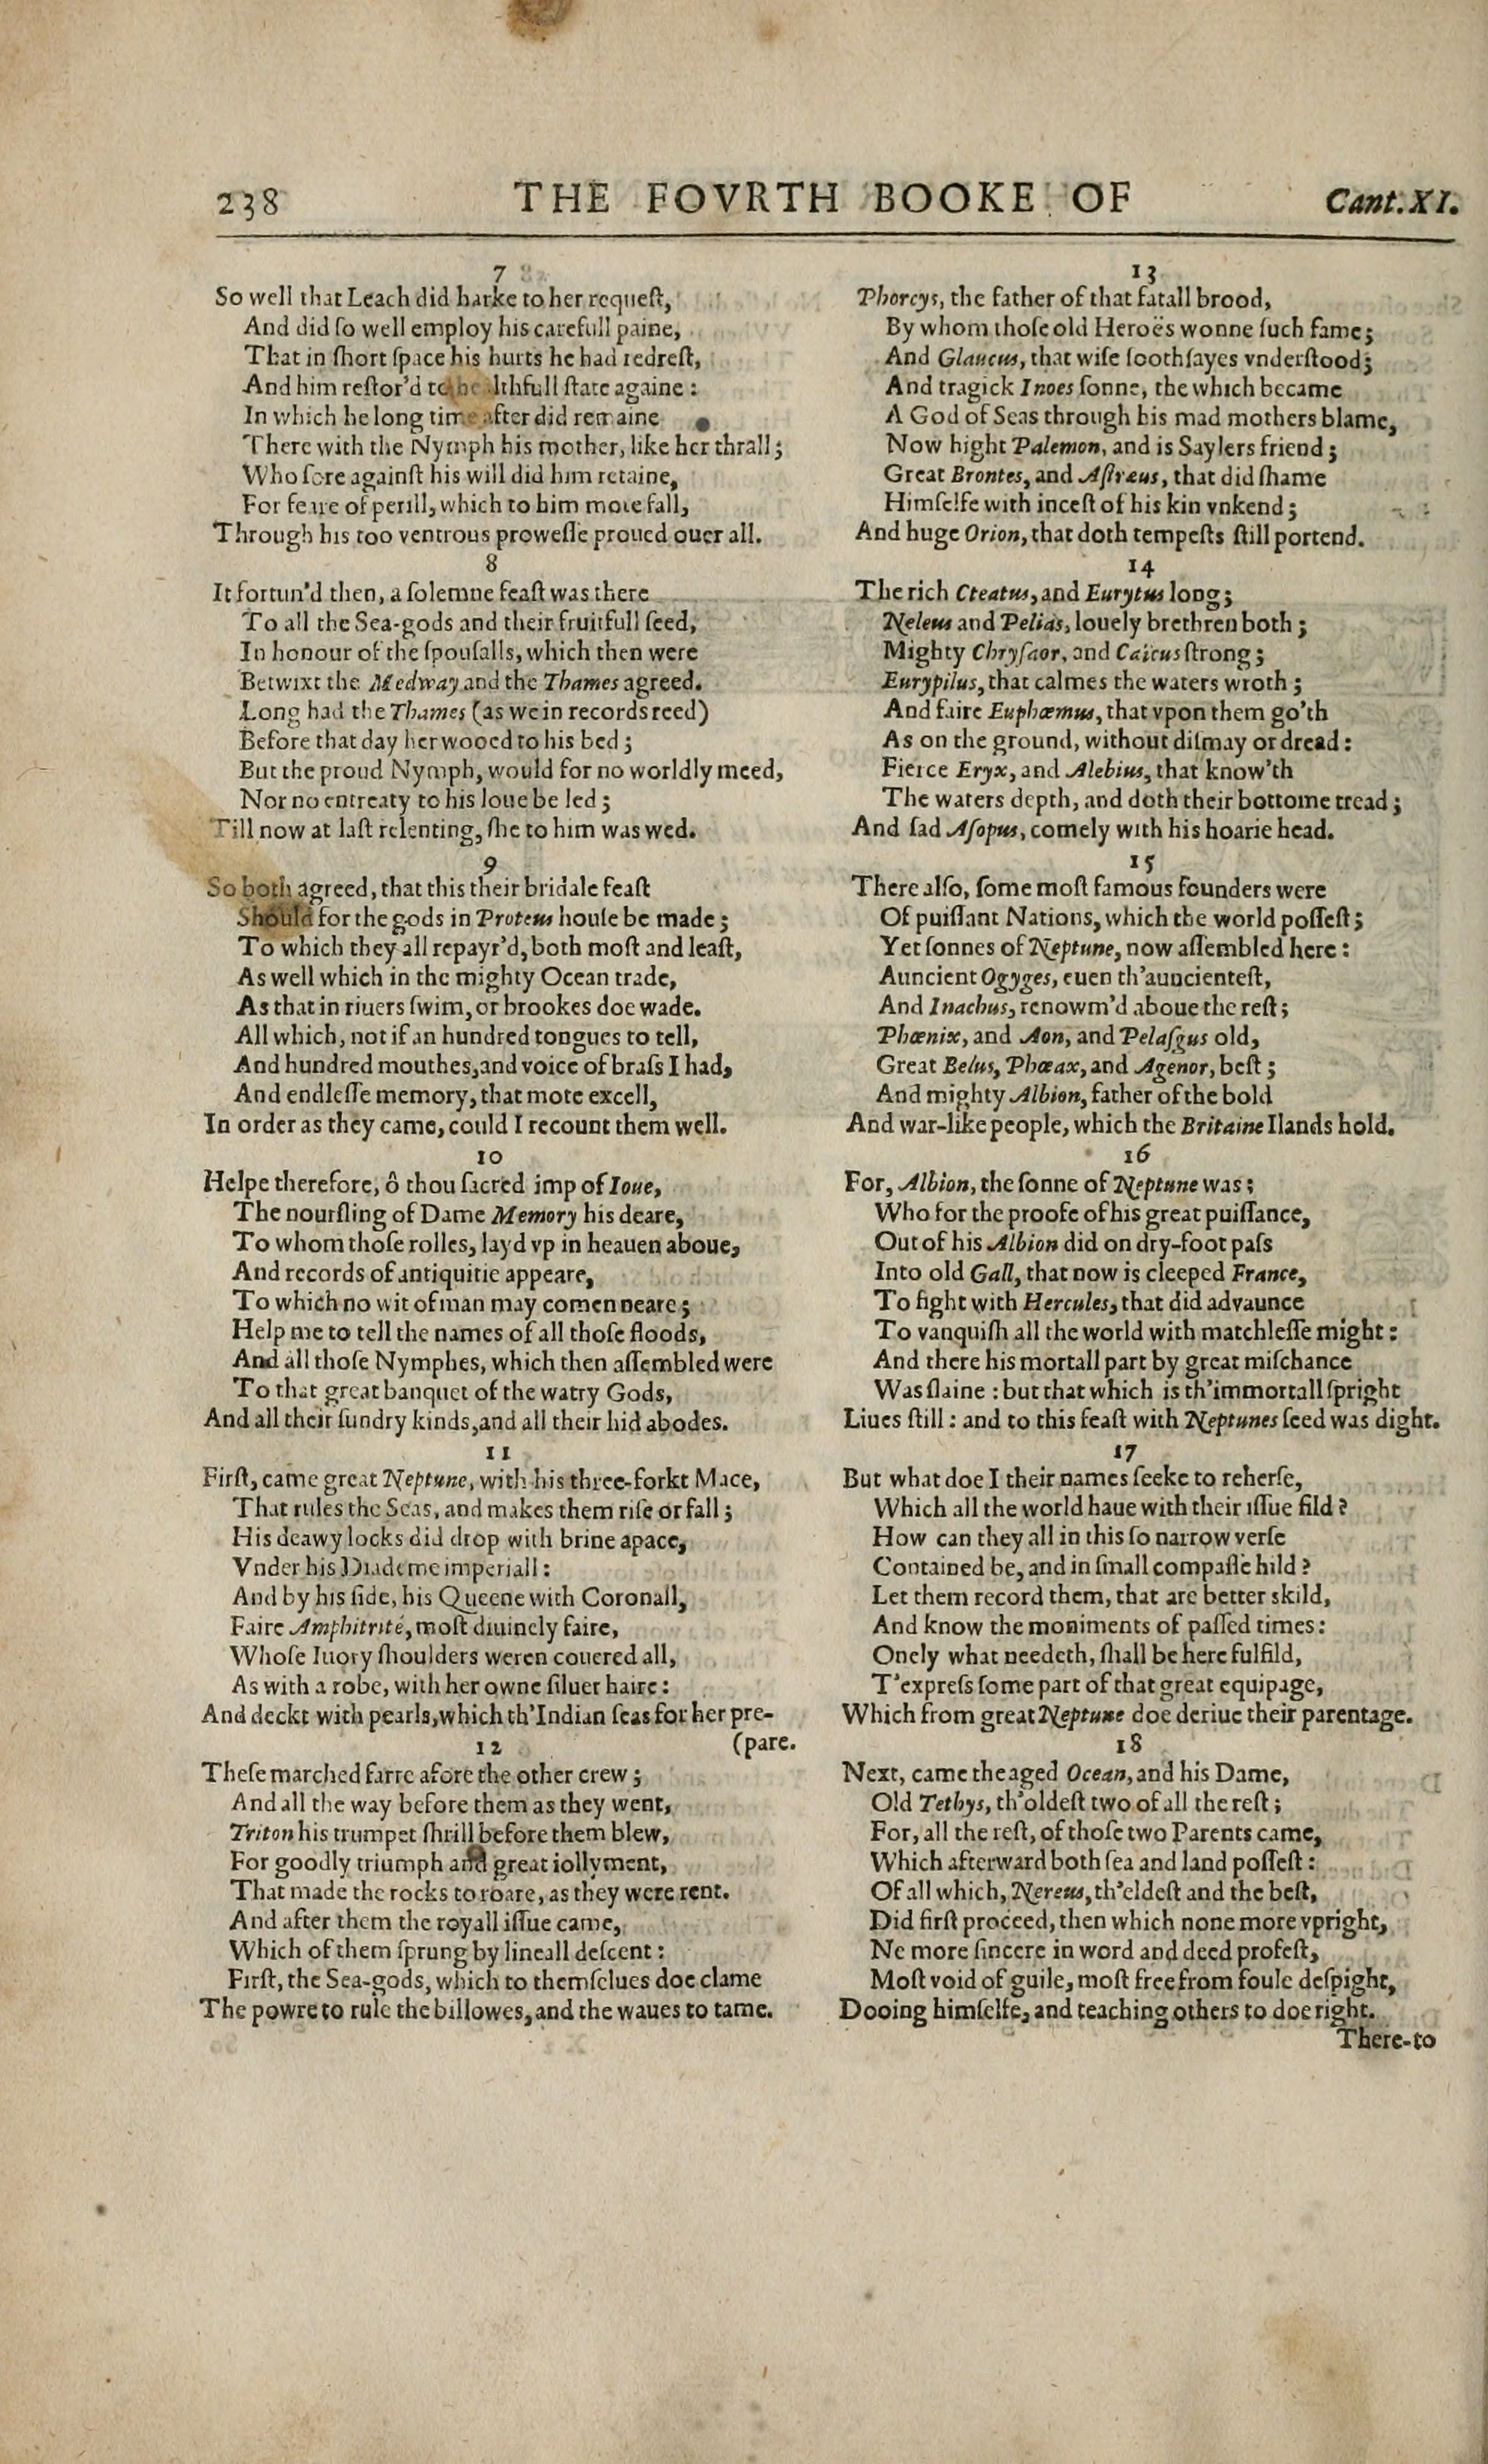 238 THE FOVRTH BOOKE OF Cant.XI.
7
So well that Leach did harke to her requeſt,
And did ſo well employ his carefull paine,
That in ſhort ſpace his hurts he had redreſt,
And him reſtor'd to healthfull ſtate againe:
In which he long time after did remaine
There with the Nymph his mother, like her thrall;
Who ſore againſt his will did him retaine,
For feare of perill, which to him mote fall,
Through his too ventrous proweſſe proued ouer all.
8
It fortun'd then, a ſolemne feaſt was there
To all the Sea-gods and their fruitfull ſeed,
In honour of the ſpouſalls, which then were
Betwixt the Medway and the Thames agreed.
Long had the Thames (as we in records reed)
Before that day her wooed to his bed;
But the proud Nymph, would for no worldly meed,
Nor no entreaty to his loue be led;
Till now at laſt relenting, ſhe to him was wed.
9
So both agreed, that this their bridale feaſt
Should for the gods in Proteus houſe be made;
To which they all repayr'd, both moſt and leaſt,
As well which in the mighty Ocean trade,
As that in riuers ſwim, or brookes doe wade.
All which, not if an hundred tongues to tell,
And hundred mouthes, and voice of braſs I had,
And endleſſe memory, that mote excell,
In order as they came, could I recount them well.
10
Helpe therefore, ô thou ſacred imp of Ioue,
The nourſling of Dame Memory his deare,
To whom thoſe rolles, layd vp in heauen aboue,
And records of antiquitie appeare,
To which no wit of man may comen neare;
Help me to tell the names of all thoſe floods,
And all thoſe Nymphes, which then aſſembled were
To that great banquet of the watry Gods,
And all their ſundry kinds, and all their hid abodes.
11
Firſt, came great Neptune, with his three-forkt Mace,
That rules the Seas, and makes them riſe or fall;
His deawy locks did drop with brine apace,
Vnder his Diademe imperiall:
And by his ſide, his Queene with Coronall,
Faire Amphitrite, moſt diuinely faire,
Whoſe Iuory ſhoulders weren couered all,
As with a robe, with her owne ſiluer haire:
And deckt with pearls, which th'Indian ſeas for her pre-
(pare.
12
Theſe marched farre afore the other crew;
And all the way before them as they went,
Triton his trumpet ſhrill before them blew,
For goodly triumph and great iollyment,
That made the rocks to roare, as they were rent.
And after them the royall iſſue came,
Which of them ſprung by lineall deſcent:
Firſt, the Sea-gods, which to themſelues doe clame
The powre to rule the billowes, and the waues to tame.
13
Phorcys, the father of that fatall brood,
By whom thoſe old Heroës wonne ſuch fame;
And Glaucus, that wiſe ſoothſayes vnderſtood;
And tragick Inoes ſonne, the which became
A God of Seas through his mad mothers blame,
Now hight Palemon, and is Saylers friend;
Great Brontes, and Aſtræus, that did ſhame
Himſelfe with inceſt of his kin vnkend;
And huge Orion, that doth tempeſts ſtill portend.
14
The rich Cteatus, and Eurytus long;
Neleus and Pelias, louely brethren both;
Mighty Chryſaor, and Caicus ſtrong;
Eurypilus, that calmes the waters wroth;
And faire Euphœmus, that vpon them go'th
As on the ground, without diſmay or dread:
Fierce Eryx, and Alebius, that know'th
The waters depth, and doth their bottome tread;
And ſad Aſopus, comely with his hoarie head.
15
There alſo, ſome moſt famous founders were
Of puiſſant Nations, which the world poſſeſt;
Yet ſonnes of Neptune, now aſſembled here:
Auncient Ogyges, euen th'auncienteſt,
And Inachus, renowm'd aboue the reſt;
Phœnix, and Aon, and Pelaſgus old,
Great Belus, Phœax, and Agenor, beſt;
And mighty Albion, father of the bold
And war-like people, which the Britaine Ilands hold.
16
For, Albion, the ſonne of Neptune was;
Who for the proofe of his great puiſſance,
Out of his Albion did on dry-foot paſs
Into old Gall, that now is cleeped France,
To fight with Hercules, that did advaunce
To vanquiſh all the world with matchleſſe might:
And there his mortall part by great miſchance
Was ſlaine: but that which is th'immortall ſpright
Liues ſtill: and to this feaſt with Neptunes ſeed was dight.
17
But what doe I their names ſeeke to reherſe,
Which all the world haue with their iſſue fild?
How can they all in this ſo narrow verſe
Contained be, and in ſmall compaſſe hild?
Let them record them, that are better skild,
And know the moniments of paſſed times:
Onely what needeth, ſhall be here fulfild,
T'expreſs ſome part of that great equipage,
Which from great Neptune doe deriue their parentage.
18
Next, came the aged Ocean, and his Dame,
Old Tethys, th'oldeſt two of all the reſt;
For, all the reſt, of thoſe two Parents came,
Which afterward both ſea and land poſſeſt:
Of all which, Nereus, th'eldeſt and the beſt,
Did firſt proceed, then which none more vpright,
Ne more ſincere in word and deed profeſt,
Moſt void of guile, moſt free from foule deſpight,
Dooing himſelfe, and teaching others to doe right.
There-to